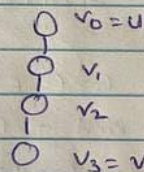 v₀ = u
v₁
v₂
v₃ = v